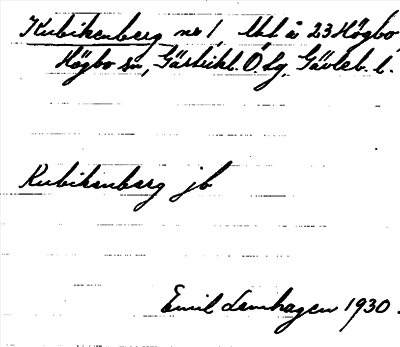 Kubikenberg nr 1, Utt å 23 Högbo,
Högbo sn, Gästrikl. Ö tg, Gävleb. l.
Kubikenberg jb
Emil Lannhagen 1930.